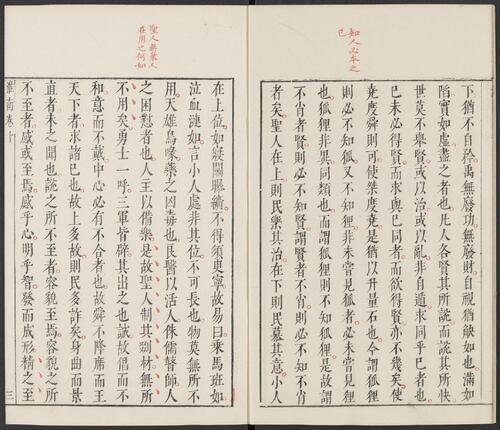 知人必本之
己
下猶不自矜禹無廢功無廢財自視猶觖如也滿如
陷實如虛盡之者也凡人各賢其所說而說其所快
世莫不舉賢或以治或以亂非自遁求同乎己者也
己未必得賢而求與己同者而欲得賢亦不幾矣使
堯度舜則可使桀度堯是猶以升量石也今謂狐狸
則必不知狐又不知狸非未嘗見狐者必未嘗見狸
也狐狸非異同類也而謂狐狸則不知狐狸是故謂
不肖者賢則必不知賢謂賢者不肖則必不知不肖
者矣聖人在上則民樂其治在下則民慕其意小人
聖人無棄人
在用之何如
在上位如寢關曝纊不得須臾寧故易曰乘馬班如
泣血漣如言小人處非其位不可長也物莫無所不
用天雄烏喙藥之凶毒也良醫以活人侏儒瞽師人
之困慰者也人主以備樂是故聖人制其剟材無所
不用矣勇士一呼三軍皆辟其出之也誠故倡而不
和意而不戴中心必有不合者也故舜不降席而王
天下者求諸己也故上多故則民多詐矣身曲而景
直者未之聞也說之所不至者容貌至焉容貌之所
不至者感或至焉感乎心明乎智發而成形精之至
淮南卷十
三